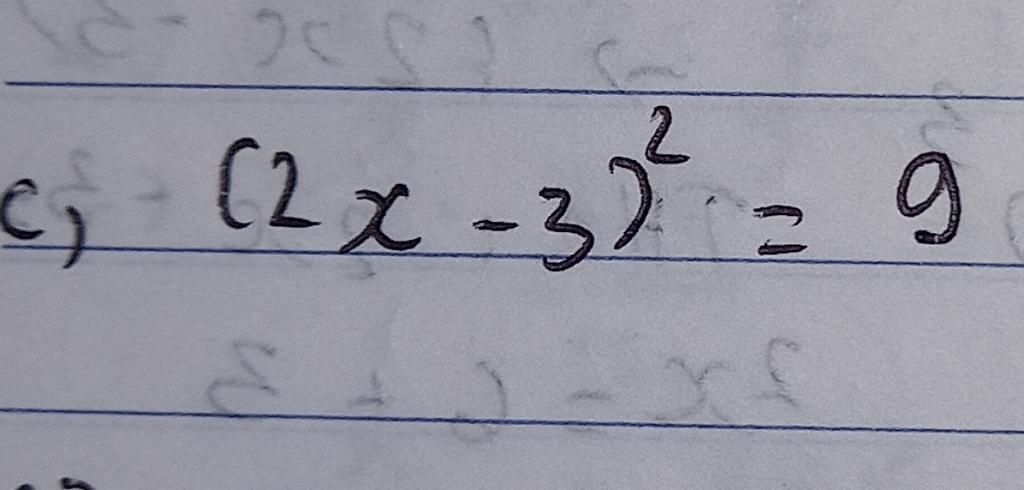 c, (2x - 3)² = 9